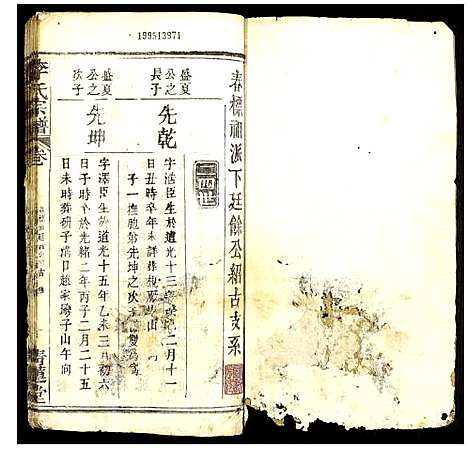 199513971
春標祖派下廷餘公紹古支系
盛夏公之長子
先乾
字活臣生於道光十三癸巳二月十一
日丑時卒年未詳葬
子一撫胞弟先坤之次子
盛夏公之次子
先坤
字澤臣生於道光十五年乙未三月初六
日子時卒於光緒二年丙子二月二十五
日未時葬硯子灣日趙家灣子山午向
李氏宗譜
卷
青蓮堂